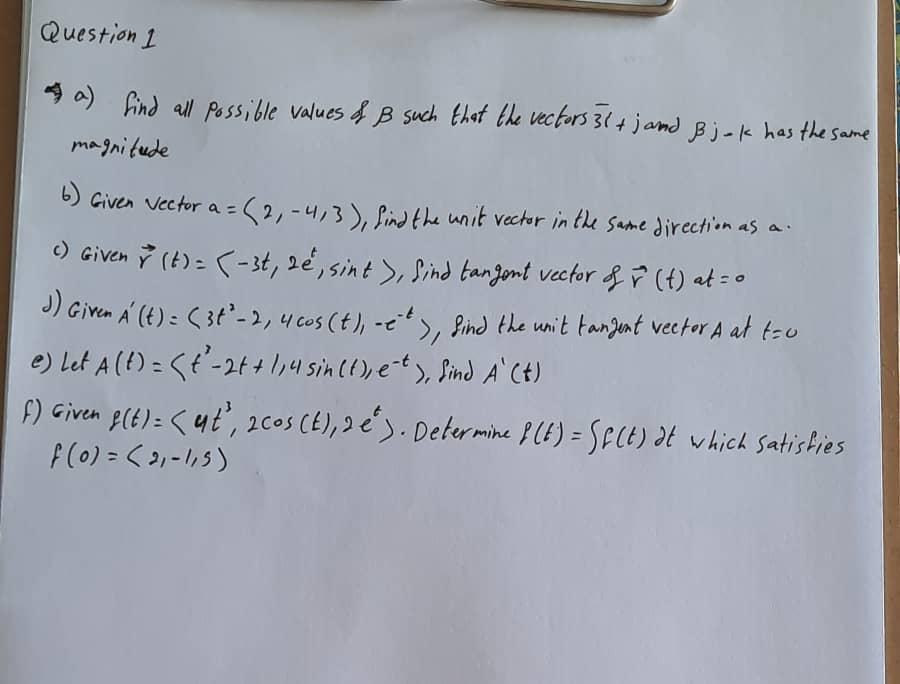 Question 1
a) find all possible values of β such that the vectors 3i + j and βj - k has the same
magnitude
b) Given vector a = <2, -4, 3>, find the unit vector in the same direction as a.
c) Given r⃗ (t) = <-3t, 2eᵗ, sint>, find tangent vector of r⃗ (t) at = 0
d) Given A'(t) = <3t² - 2, 4cos(t), -e⁻ᵗ>, find the unit tangent vector A at t=0
e) Let A(t) = <t³ - 2t + 1, 4 sin(t), e⁻ᵗ>, find A'(t)
f) Given f(t) = <4t³, 2cos(t), 2eᵗ>. Determine f(t) = ∫f(t) dt which satisfies
f(0) = <2, -1, 5>